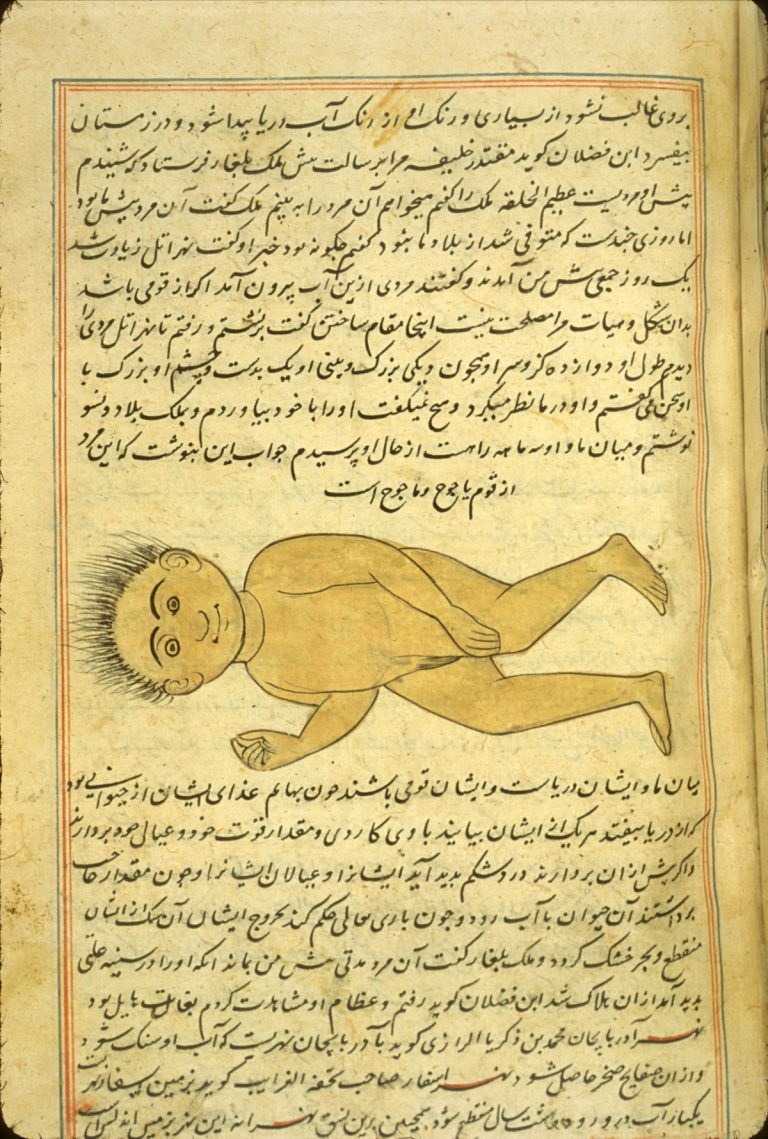 بروی غالب نشود از بسیاری و رنک او از رنک آب دریا پیدا شود و در زمستان
بیفسرد ابن فضلان کوید مقتدر خلیفه مرا برسالت پیش ملک بلغار فرستاد که شنیدم
پیش او مردیست عظیم الخلقه ملک را کفتم میخواهم آن مرد را به بینم ملک کفت آن مرد پیش ما بود
اما روزی چندست که متوفی شد از بلاد ما نبود کفتم چکونه بود خبر او کفت نهر اتل زیادت شد
یک روز جمعی پیش من آمدند و کفتند مردی ازین آب بیرون آمد اکر از قومی باشد
بدان شکل و هیات مرا مصلحت نیست اینجا مقام ساختن کفت برنشستم و رفتم تا نهر اتل مردی را
دیدم طول او دوازده کز و سر او همچون دیکی بزرک و بینی او یک بدست و چشم او بزرک با
او سخن می کفتم و او در ما نظر میکرد و هیچ نمیکفت او را با خود بیاوردم و بملک بلاد ویسو
نوشتم و میان ما و او سه ماهه راهست از حال او پرسیدم جواب این بنوشت که این مرد
از قوم یاجوج و ماجوج است
میان ما و ایشان دریاست و ایشان قومی باشند چون بهایم غذای ایشان از حیوانی بود
که از دریا بیفتد هر یک از ایشان بیایند با وی کاردی و مقدار قوت خود و عیال خود بردارند
و اکر بیش از ان بردارند درد شکم بدید آید ایشانرا و عیالان ایشانرا و چون مقدار حاجت
برداشتند آن حیوان باآب رود و چون باری تعالی حکم کند بخروج ایشان آن سمک از ایشان
منقطع و بحر خشک کردد و ملک بلغار کفت آن مرد مدتی پیش من بماند انکه او را در سینه علتی
بدید آمد از ان هلاک شد ابن فضلان کوید رفتم و عظام او مشاهدت کردم بغایت هایل بود
نهر آدربایجان محمد بن ذکریا الرازی کوید بآدربایجان نهریست که آب او سنک شود
و از ان صفایح صخر حاصل شود نهر اسفار صاحب تحفة الغرایب کوید بزمین اسفار نهریست
یکبار آب درو رود هشت سال منقطع شود همچنین برین نسق نهر این نهر بزمین